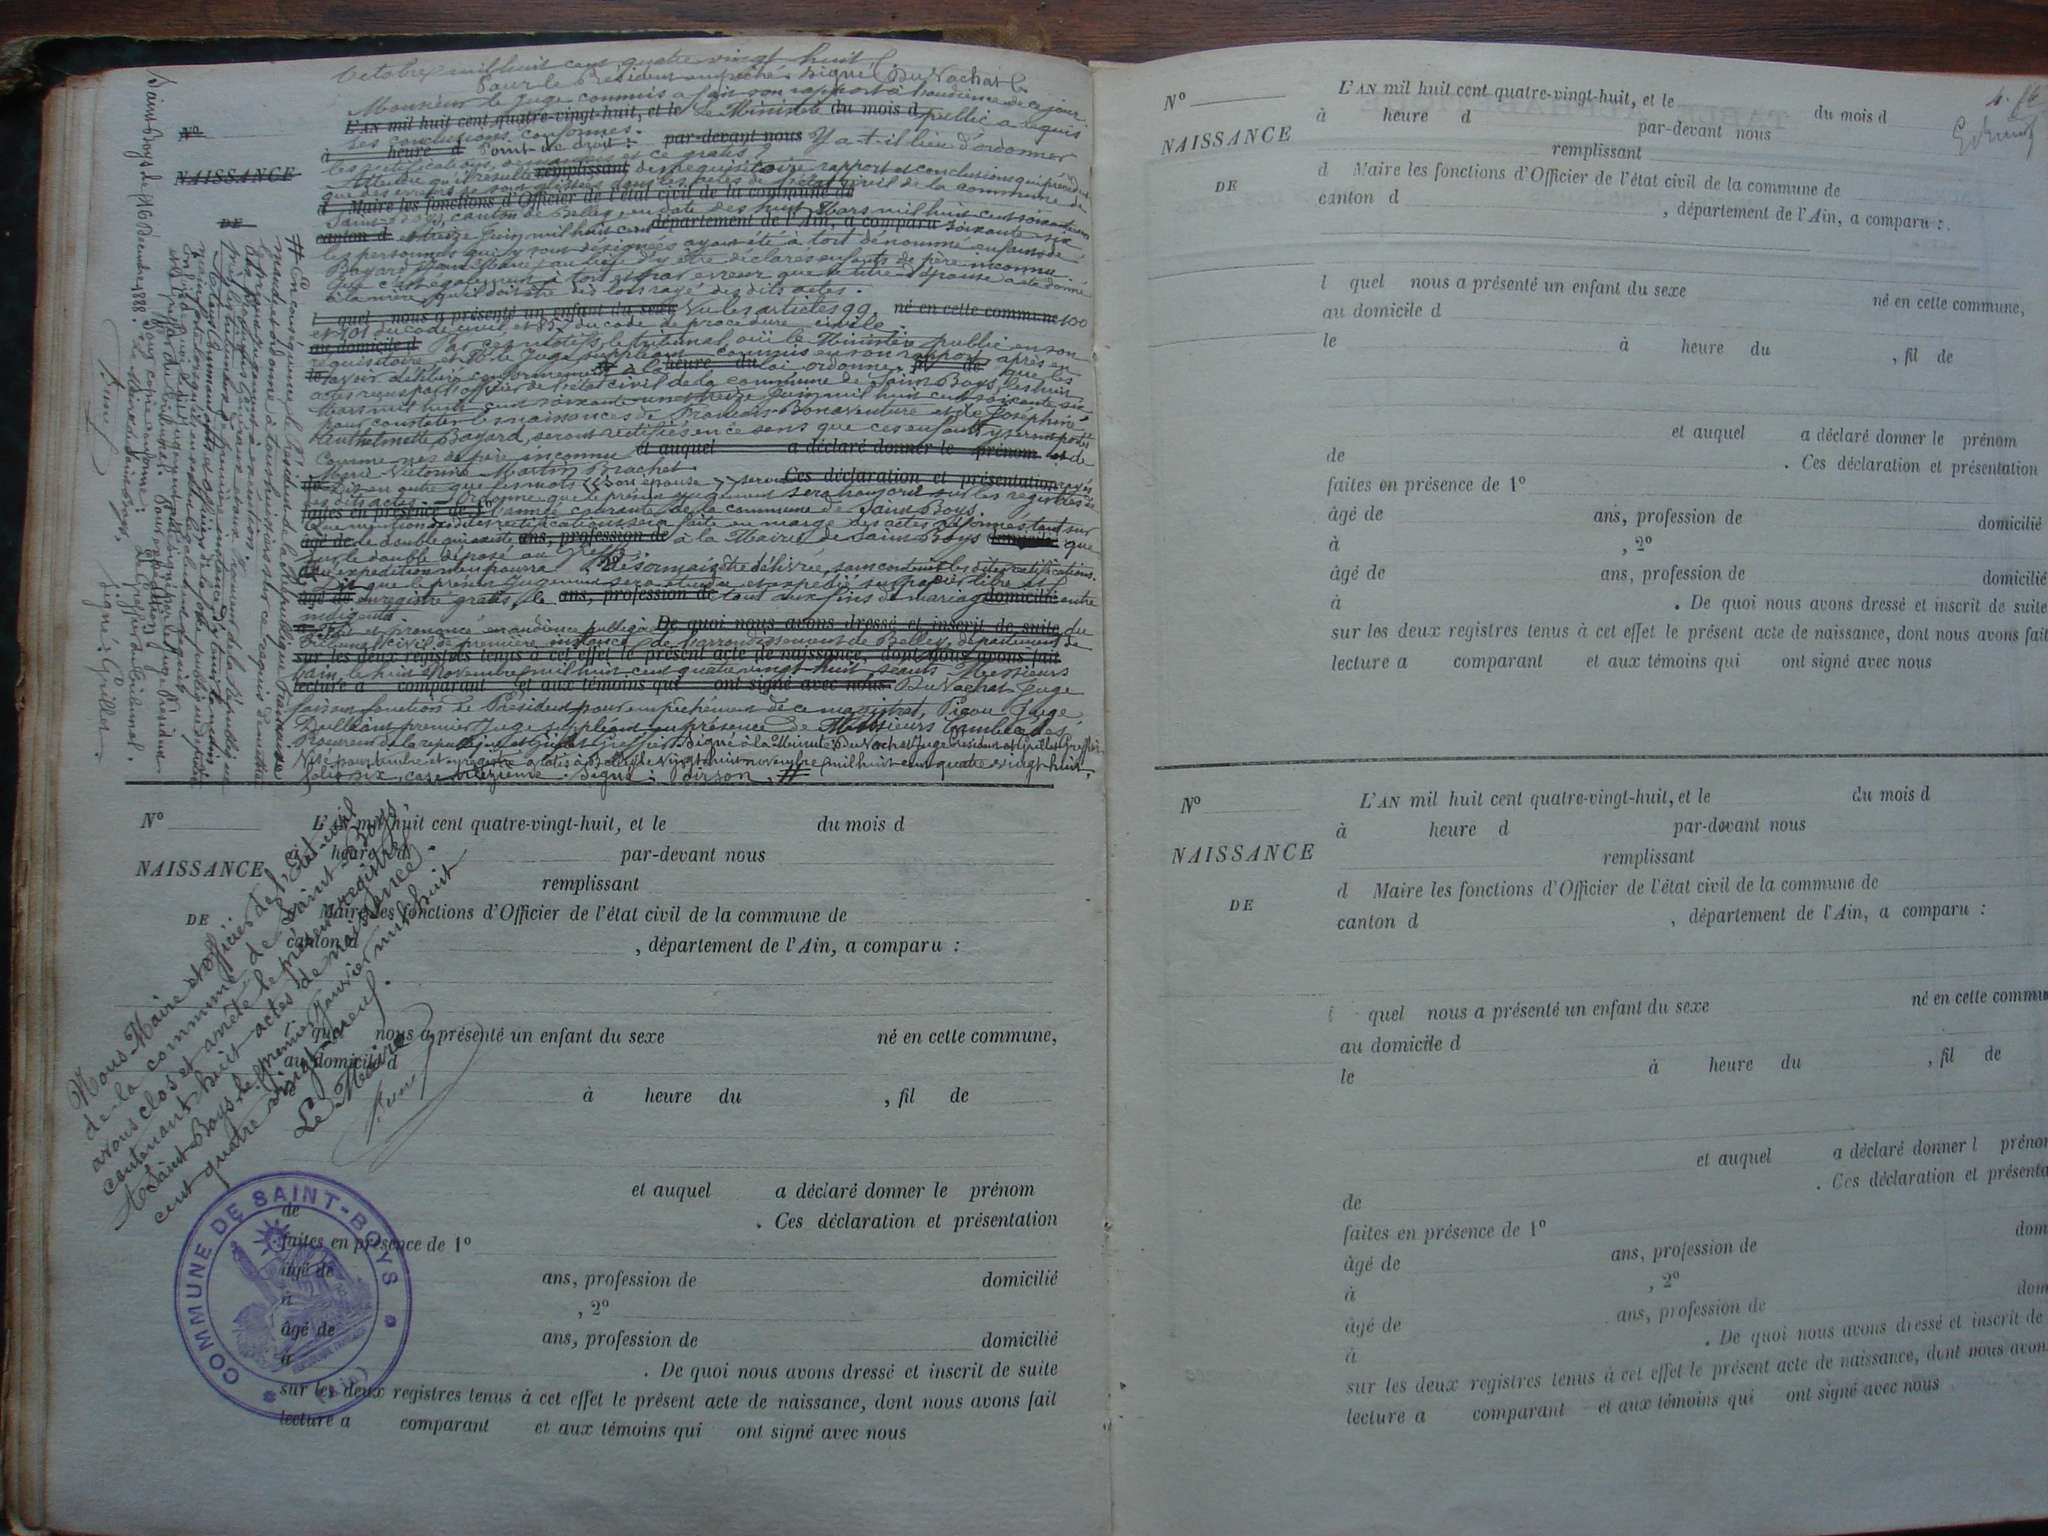 Octobre mil huit cent quatre vingt huit
Pour le Président empêché. Signé: Du Vachat
Monsieur le Juge commis a fait son rapport à l'audience de ce jour
L'AN mil huit cent quatre-vingt-huit, et le Le Ministère du mois d public a requis
ses conclusions conformes. par-devant nous
à heure d Point de droit: Y a-t-il lieu d'ordonner
les rectifications demandées et ce gratis?
remplissant
Attendu qu'il résulte des réquisitoire, rapport et conclusions qui précèdent
que des erreurs se sont glissées dans les actes de l'état civil de la commune de
d Maire les fonctions d'Officier de l'état civil de la commune de
Saint-Boys, canton de Belley, en date des huit Mars mil huit cent soixante
canton d et treize Juin mil huit cent département de l'Ain, a comparu soixante six
les personnes qui y sont désignées ayant été à tort dénommé enfants de
Bayard au lieu d'y être déclarés enfants de père inconnu.
Que c'est également à tort et par erreur que le titre d'épouse a été donné
à la mère, qu'il doit être dès lors rayé des dits actes.
l quel nous a présenté un enfant du sexe Vu les articles 99, né en cette commune 100
et 101 du code civil, et 857 du code de procédure civile.
au domicile d Par ces motifs, le tribunal, ouï le Ministère public en son
réquisitoire et M. le Juge suppléant commis en son rapport, après en
le avoir délibéré conformément à la heure du loi ordonne fil de que les
actes reçus par l'officier de l'état civil de la commune de Saint-Boys, les huit
Mars mil huit cent soixante une treize Juin mil huit cent soixante six
pour constater les naissances de François-Bonaventure et de Joséphine
Anthelmette Bayard, seront rectifiés en ce sens que ces enfants y seront portés
comme nés de père inconnu et auquel a déclaré donner le prénom et de
Marie Victorine Martin Brachet.
de Dit en outre que les mots "son épouse" seront Ces déclaration et présentation rayés
des dits actes. Ordonne que le présent jugement sera transcrit sur les registres de
faites en présence de 1° l'année courante de la commune de Saint-Boys.
Que mention des dites rectifications sera faite en marge des actes réformés tant sur
âgé de le double qui existe ans, profession de à la Mairie de Saint-Boys domicilié que
sur le double déposé au Greffe
à expédition n'en pourra 2° désormais être délivrée, sans contenir les dites rectifications.
Dit que le présent jugement sera étendu et expédié sur papier libre et
âgé de enregistré gratis, le ans, profession de tout aux fins de mariage domicilié entre
indigents
Fait et prononcé en audience publique De quoi nous avons dressé et inscrit de suite du
tribunal civil de première instance de l'arrondissement de Belley, département de
sur les deux registres tenus à cet effet le présent acte de naissance, dont nous avons fait
l'ain, le huit Novembre mil huit cent quatre vingt huit, séants Messieurs
lecture a comparant et aux témoins qui ont signé avec nous. Du Vachat Juge
faisant fonction de Président pour empêchement de ce magistrat, Pigou Juge,
premier Juge suppléant en présence de Messieurs
Procureur de la république et Grillet Greffier. Signé à la Minute Du Vachat Juge Président et Grillet Greffier.
Visé pour timbre et enregistré gratis à Belley le vingt huit novembre mil huit cent quatre vingt huit,
folio six, case treizième. Signé: Pirson. #
N°
NAISSANCE
DE
# En conséquence le Président de la République Française
mande et ordonne à tous huissiers sur ce requis de mettre
le présent jugement à exécution
aux procureurs généraux et aux procureurs de la République
près les tribunaux de première instance d'y tenir la main
A tous commandants et officiers de la force publique de prêter
main forte lorsqu'ils en seront légalement requis
En foi de quoi le présent jugement a été signé par le juge Président
et le greffier du tribunal. Pour expédition
Le greffier du tribunal,
signé: Grillet.
Pour copie conforme:
Saint-Boys le 16 Décembre 1888. Le Maire de Saint-Boys,
N°
NAISSANCE
DE
L'AN mil huit cent quatre-vingt-huit, et le du mois d
à heure d par-devant nous
remplissant
d Maire les fonctions d'Officier de l'état civil de la commune de
canton d , département de l'Ain, a comparu :
l quel nous a présenté un enfant du sexe né en cette commune,
au domicile d
à heure du , fil de
et auquel a déclaré donner le prénom
de . Ces déclaration et présentation
faites en présence de 1°
âgé de ans, profession de domicilié
à , 2°
âgé de ans, profession de domicilié
à . De quoi nous avons dressé et inscrit de suite
sur les deux registres tenus à cet effet le présent acte de naissance, dont nous avons fait
lecture a comparant et aux témoins qui ont signé avec nous
Nous Maire et officier de l'Etat-civil
de la commune de Saint-Boys
avons clos et arrêté le présent registre
contenant huit actes de naissance.
A Saint-Boys le premier Janvier mil huit
cent quatre vingt-neuf.
Le Maire
COMMUNE DE SAINT-BOYS
(Ain)
N°
NAISSANCE
DE
L'AN mil huit cent quatre-vingt-huit, et le du mois d
à heure d par-devant nous
remplissant
d Maire les fonctions d'Officier de l'état civil de la commune de
canton d , département de l'Ain, a comparu :
l quel nous a présenté un enfant du sexe né en cette commune,
au domicile d
le à heure du , fil de
et auquel a déclaré donner le prénom
de . Ces déclaration et présentation
faites en présence de 1°
âgé de ans, profession de domicilié
à , 2°
âgé de ans, profession de domicilié
à . De quoi nous avons dressé et inscrit de suite
sur les deux registres tenus à cet effet le présent acte de naissance, dont nous avons fait
lecture a comparant et aux témoins qui ont signé avec nous
N°
NAISSANCE
DE
L'AN mil huit cent quatre-vingt-huit, et le du mois d
à heure d par-devant nous
remplissant
d Maire les fonctions d'Officier de l'état civil de la commune de
canton d , département de l'Ain, a comparu :
l quel nous a présenté un enfant du sexe né en cette commu
au domicile d
le à heure du , fil de
et auquel a déclaré donner l prénom
de . Ces déclaration et présenta
faites en présence de 1°
âgé de ans, profession de dom
à , 2°
âgé de ans, profession de dom
à . De quoi nous avons dressé et inscrit de
sur les deux registres tenus à cet effet le présent acte de naissance, dont nous avon
lecture a comparant et aux témoins qui ont signé avec nous